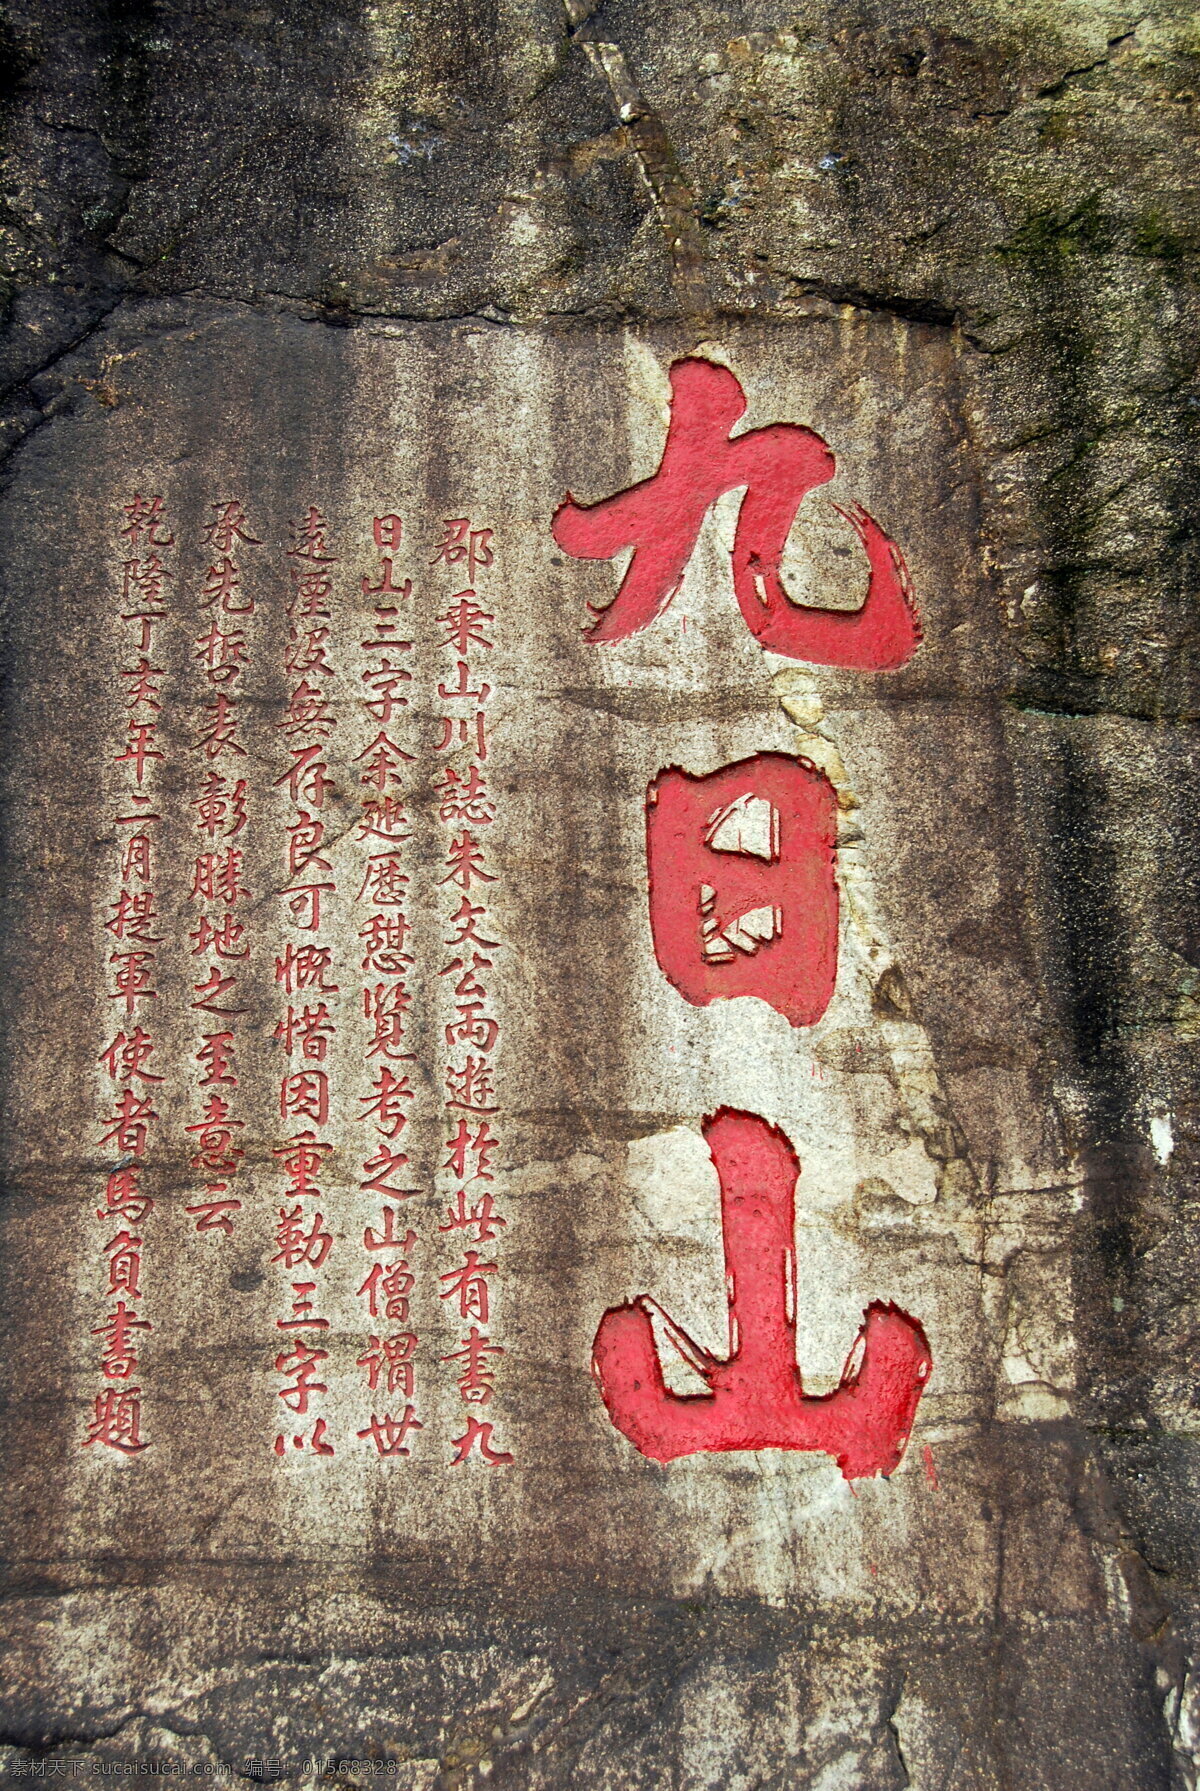 九日山
郡乘山川誌朱文公两遊於此有書九
日山三字余廵歷憇覽考之山僧谓世
遠湮没無存良可慨惜因重勒三字以
承先哲表彰勝地之至意云
乾隆丁亥年二月提軍使者馬負書題
素材天下 sucaisucai.com 编号：01568328